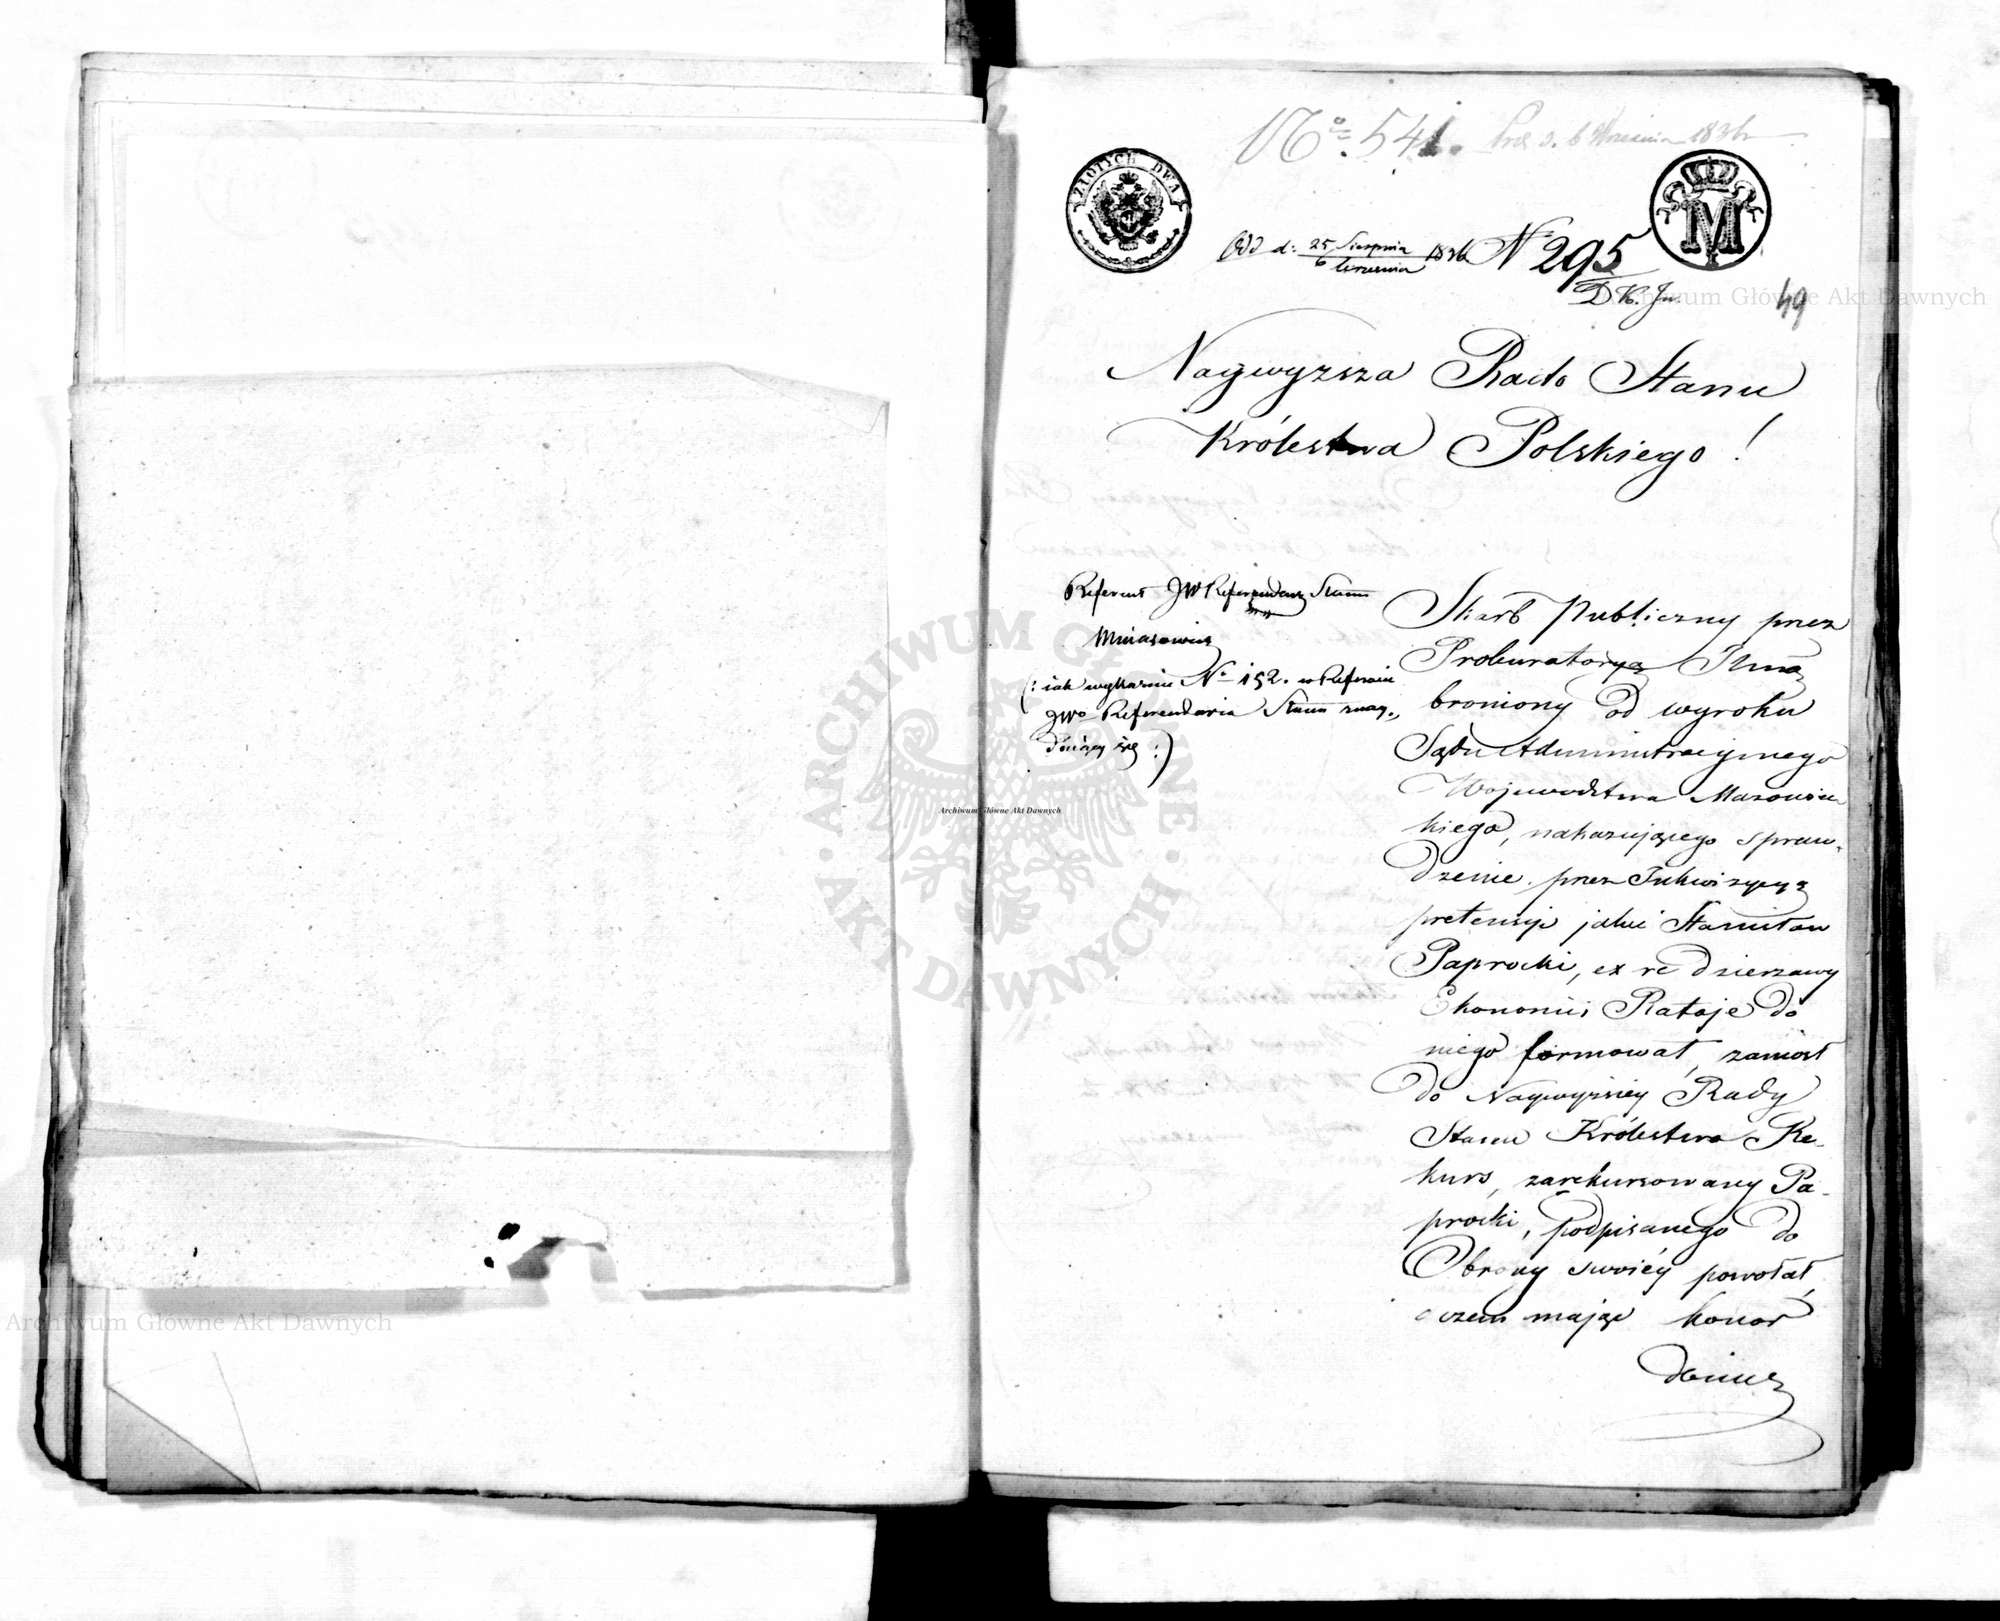 No. 541. Prez. d. 6 Września 1836
ZŁOTYCH DWA
M
Odd d: 25 Sierpnia / 6 Września 1836 No 295
D. K. Jn.
49
Naywyższa Rado Stanu
Królestwa Polskiego!
Referent JW Referendarz Stanu
Miniasowicz
(: jak wykazuie No 152. w Referacie
JWo Referendaria Stanu znay-
duiący się :)
Skarb Publiczny przez
Prokuratoryą Jlną
broniony od wyroku
Sądu Administracyinego
Wojewodztwa Mazowiec
kiego, nakazującego spraw-
dzenie przez Inkwizycyą
pretensyi jakie Stanisław
Paprocki, ex re dzierzawy
Ekonomii Rataje do
niego formował, zaniósł
do Naywyższey Rady
Stanu Królestwa Re-
kurs, zarekursowany Pa-
procki, podpisanego do
Obrony swoiéy powołał,
o czem mając honor
donieść
Archiwum Główne Akt Dawnych
Archiwum Główne Akt Dawnych
Archiwum Główne Akt Dawnych
ARCHIWUM GŁÓWNE · AKT DAWNYCH ·